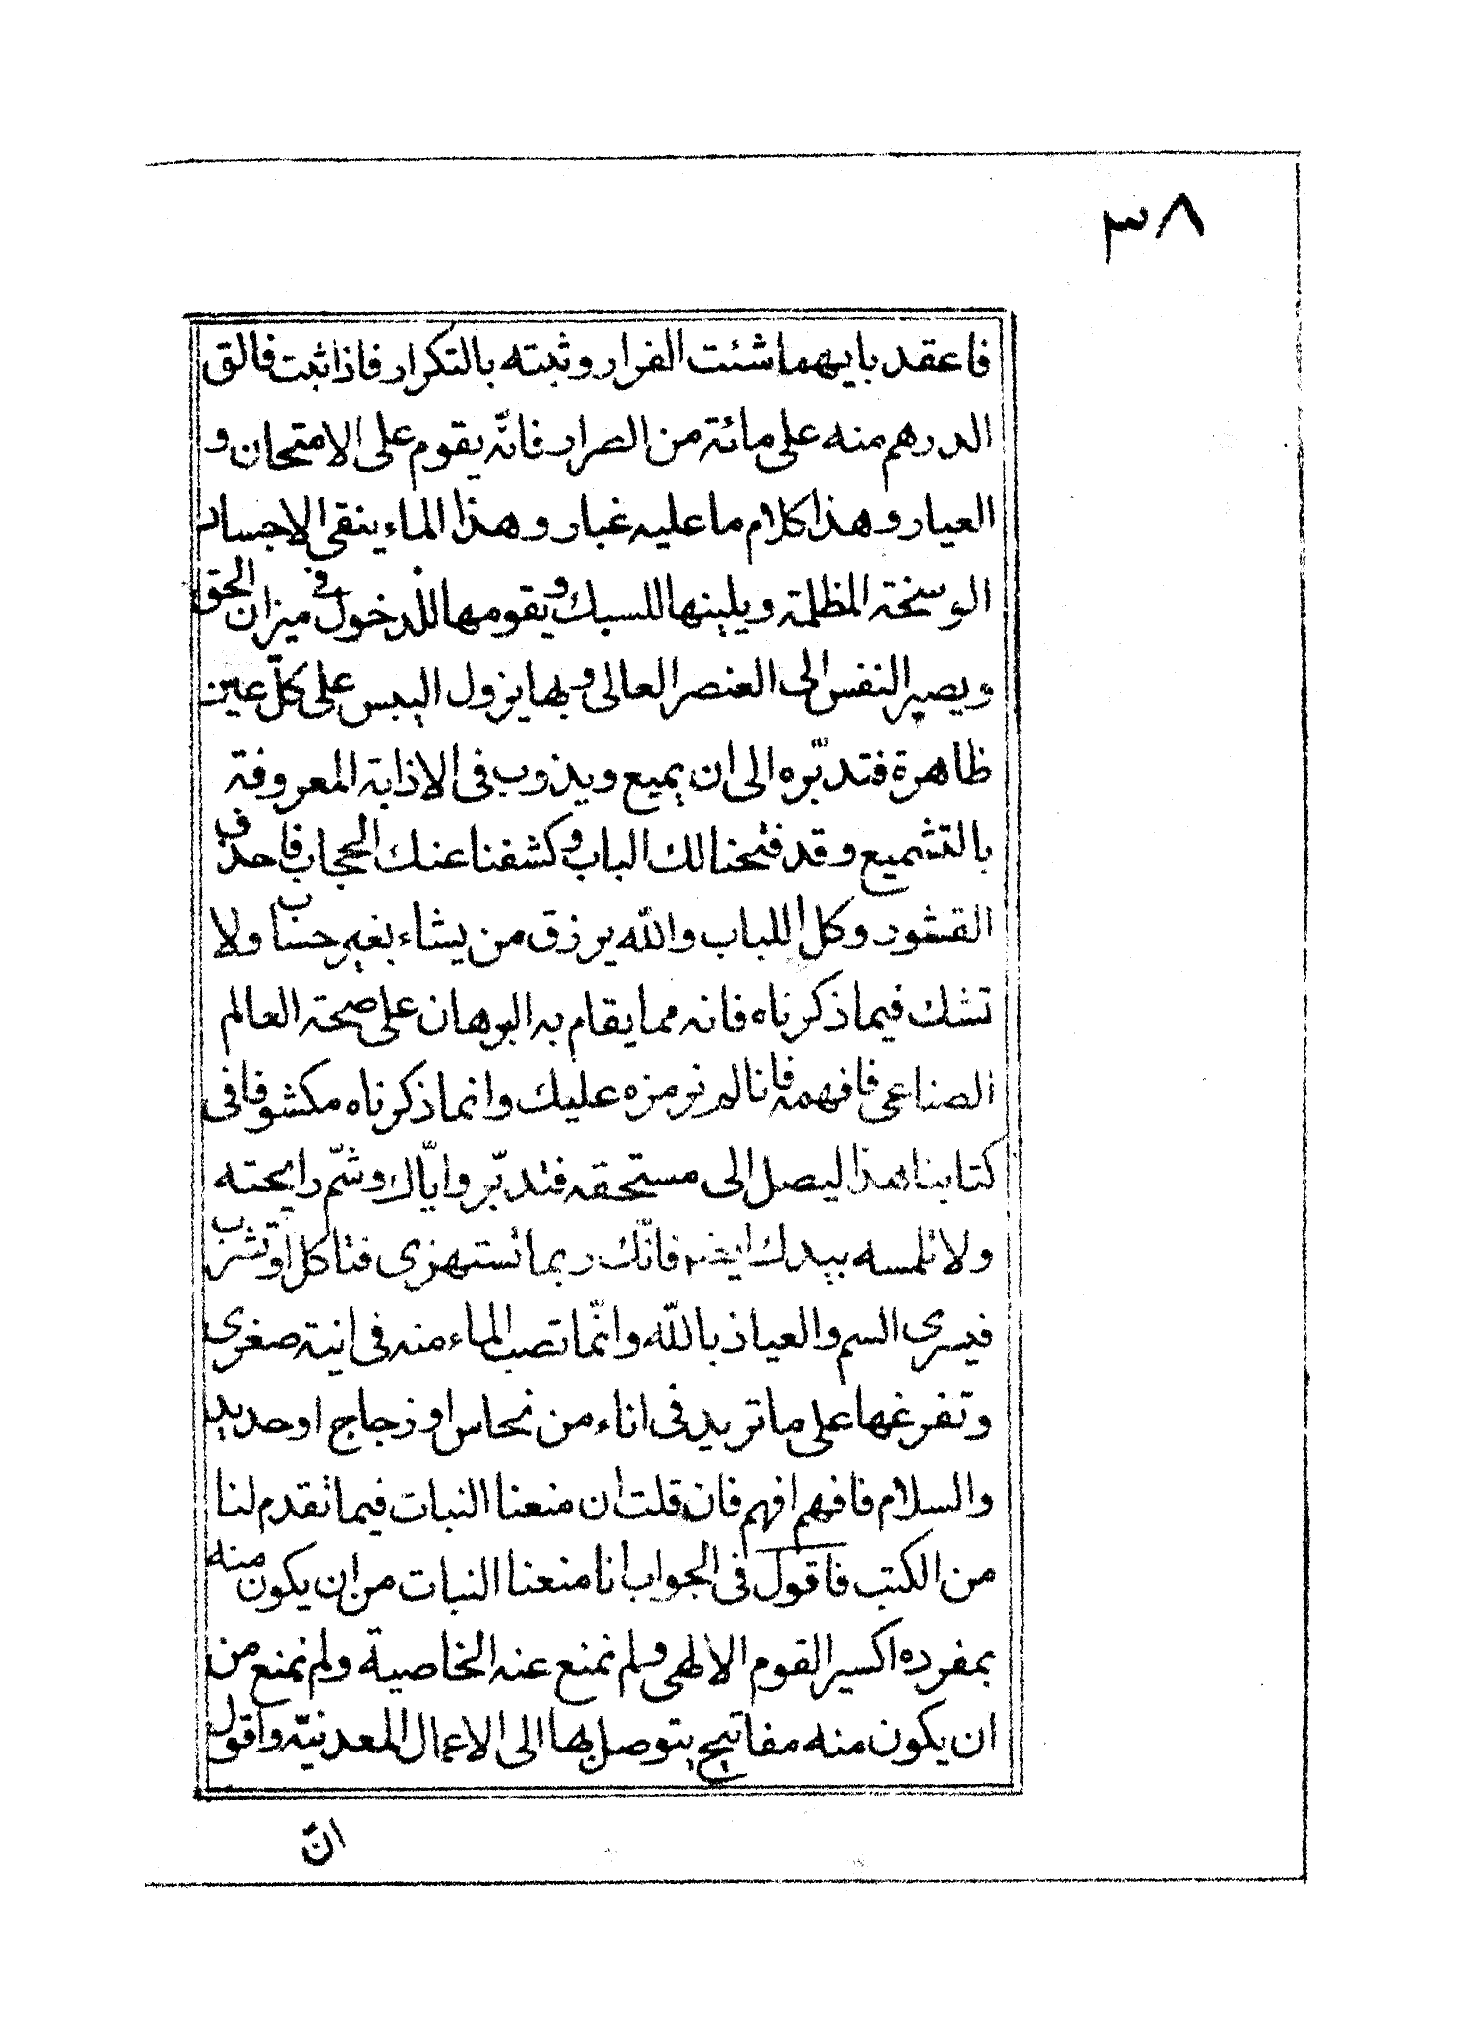 ٣٨
فاعقد بايهما شئت الفرار وثبته بالتكرار فاذا ثبت فالق
الدرهم منه على مائة من الصرار فانّه يقوم على الامتحان و
العيار وهذا كلام ما عليه غبار وهذا الماء ينقى الاجساد
الوسخة المظلمة ويلينها للسبك ويقومها للدخول فى ميزان الحق
ويصير النفس الى العنصر العالى وبها يزول اليبس على كلّ عين
ظاهرة فتدبّره الى ان يميع ويذوب فى الاذابة المعروفة
بالتشميع وقد فتحنا لك الباب وكشفنا عنك الحجاب فاحذف
القشور وكل اللباب والله يرزق من يشاء بغير حساب ولا
تشك فيما ذكرناه فانه مما يقام به البرهان على صحة العالم
الصناعى فافهمه فانا لم نرمزه عليك وانما ذكرناه مكشوفا فى
كتابنا هذا ليصل الى مستحقه فتدبّر واياّك وشمّ رايحته
ولا تلمسه بيدك فانّك ربما تستهزى فتاكل او تشرب
فيسرى السم والعياذ بالله وانّما تصب الماء منه فى انية صغرى
وتفرغها على ما تريد فى اناء من نحاس او زجاج او حديد
والسلام فافهم افهم فان قلت ان منعنا النبات فيما تقدم لنا
من الكتب فاقول فى الجواب انا منعنا النبات من ان يكون منه
بمفرده اكسير القوم الالهى ولم نمنع عنه الخاصية ولم نمنع من
ان يكون منه مفاتيح يتوصل بها الى الاعمال المعدنيّة واقول
انّ